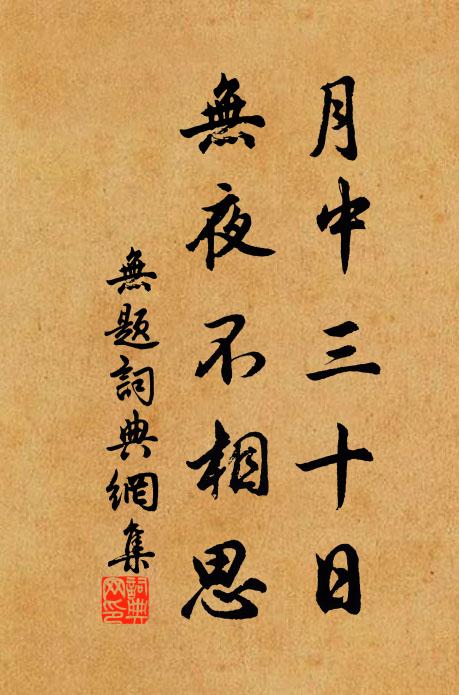 月中三十日
無夜不相思
無題詞典網集
詞典
网印